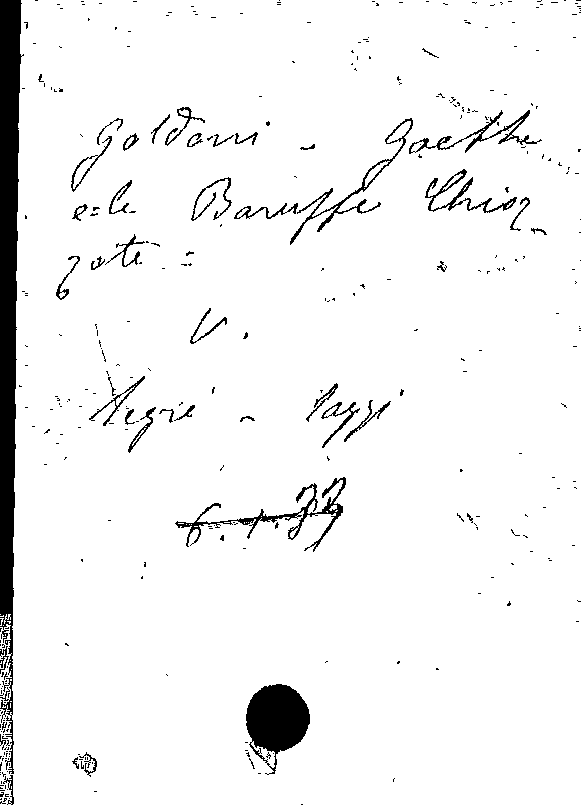 Goldoni - Goethe
e le Baruffe Chioz_
zote =
V.
Negri - Saggi
6.1.33